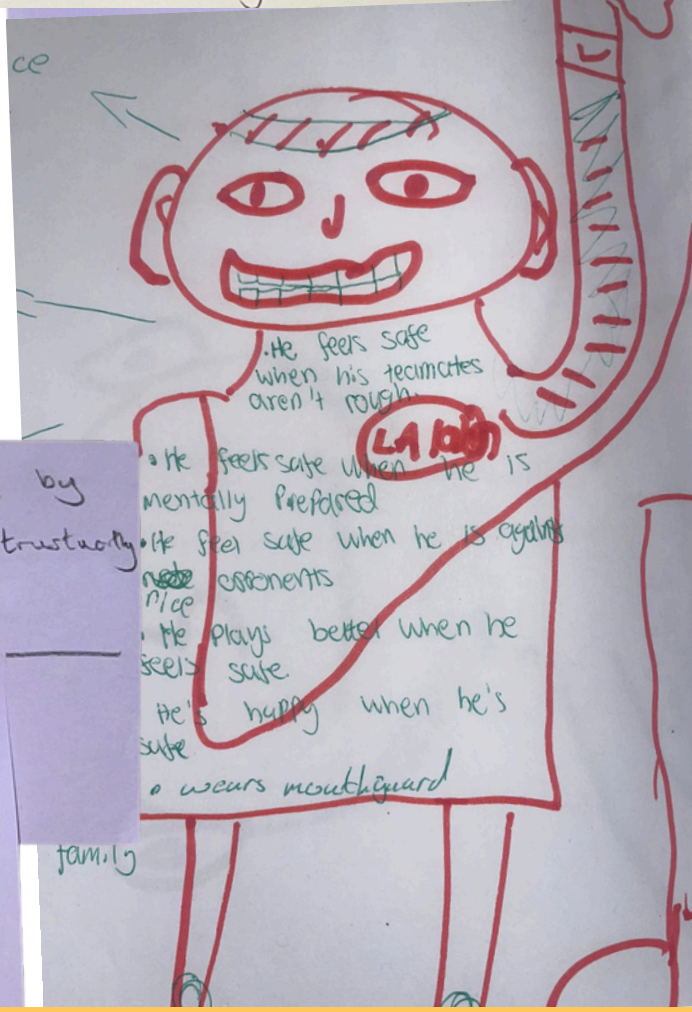 ce
• He feels safe
when his teamates
aren't rough.
LA
• He feels safe when he is
mentally Prepared
• He feel safe when he is against
opponents
nice
• He plays better when he
feels safe.
He's happy when he's
safe
• wears mouthguard
by
trustworthy
family